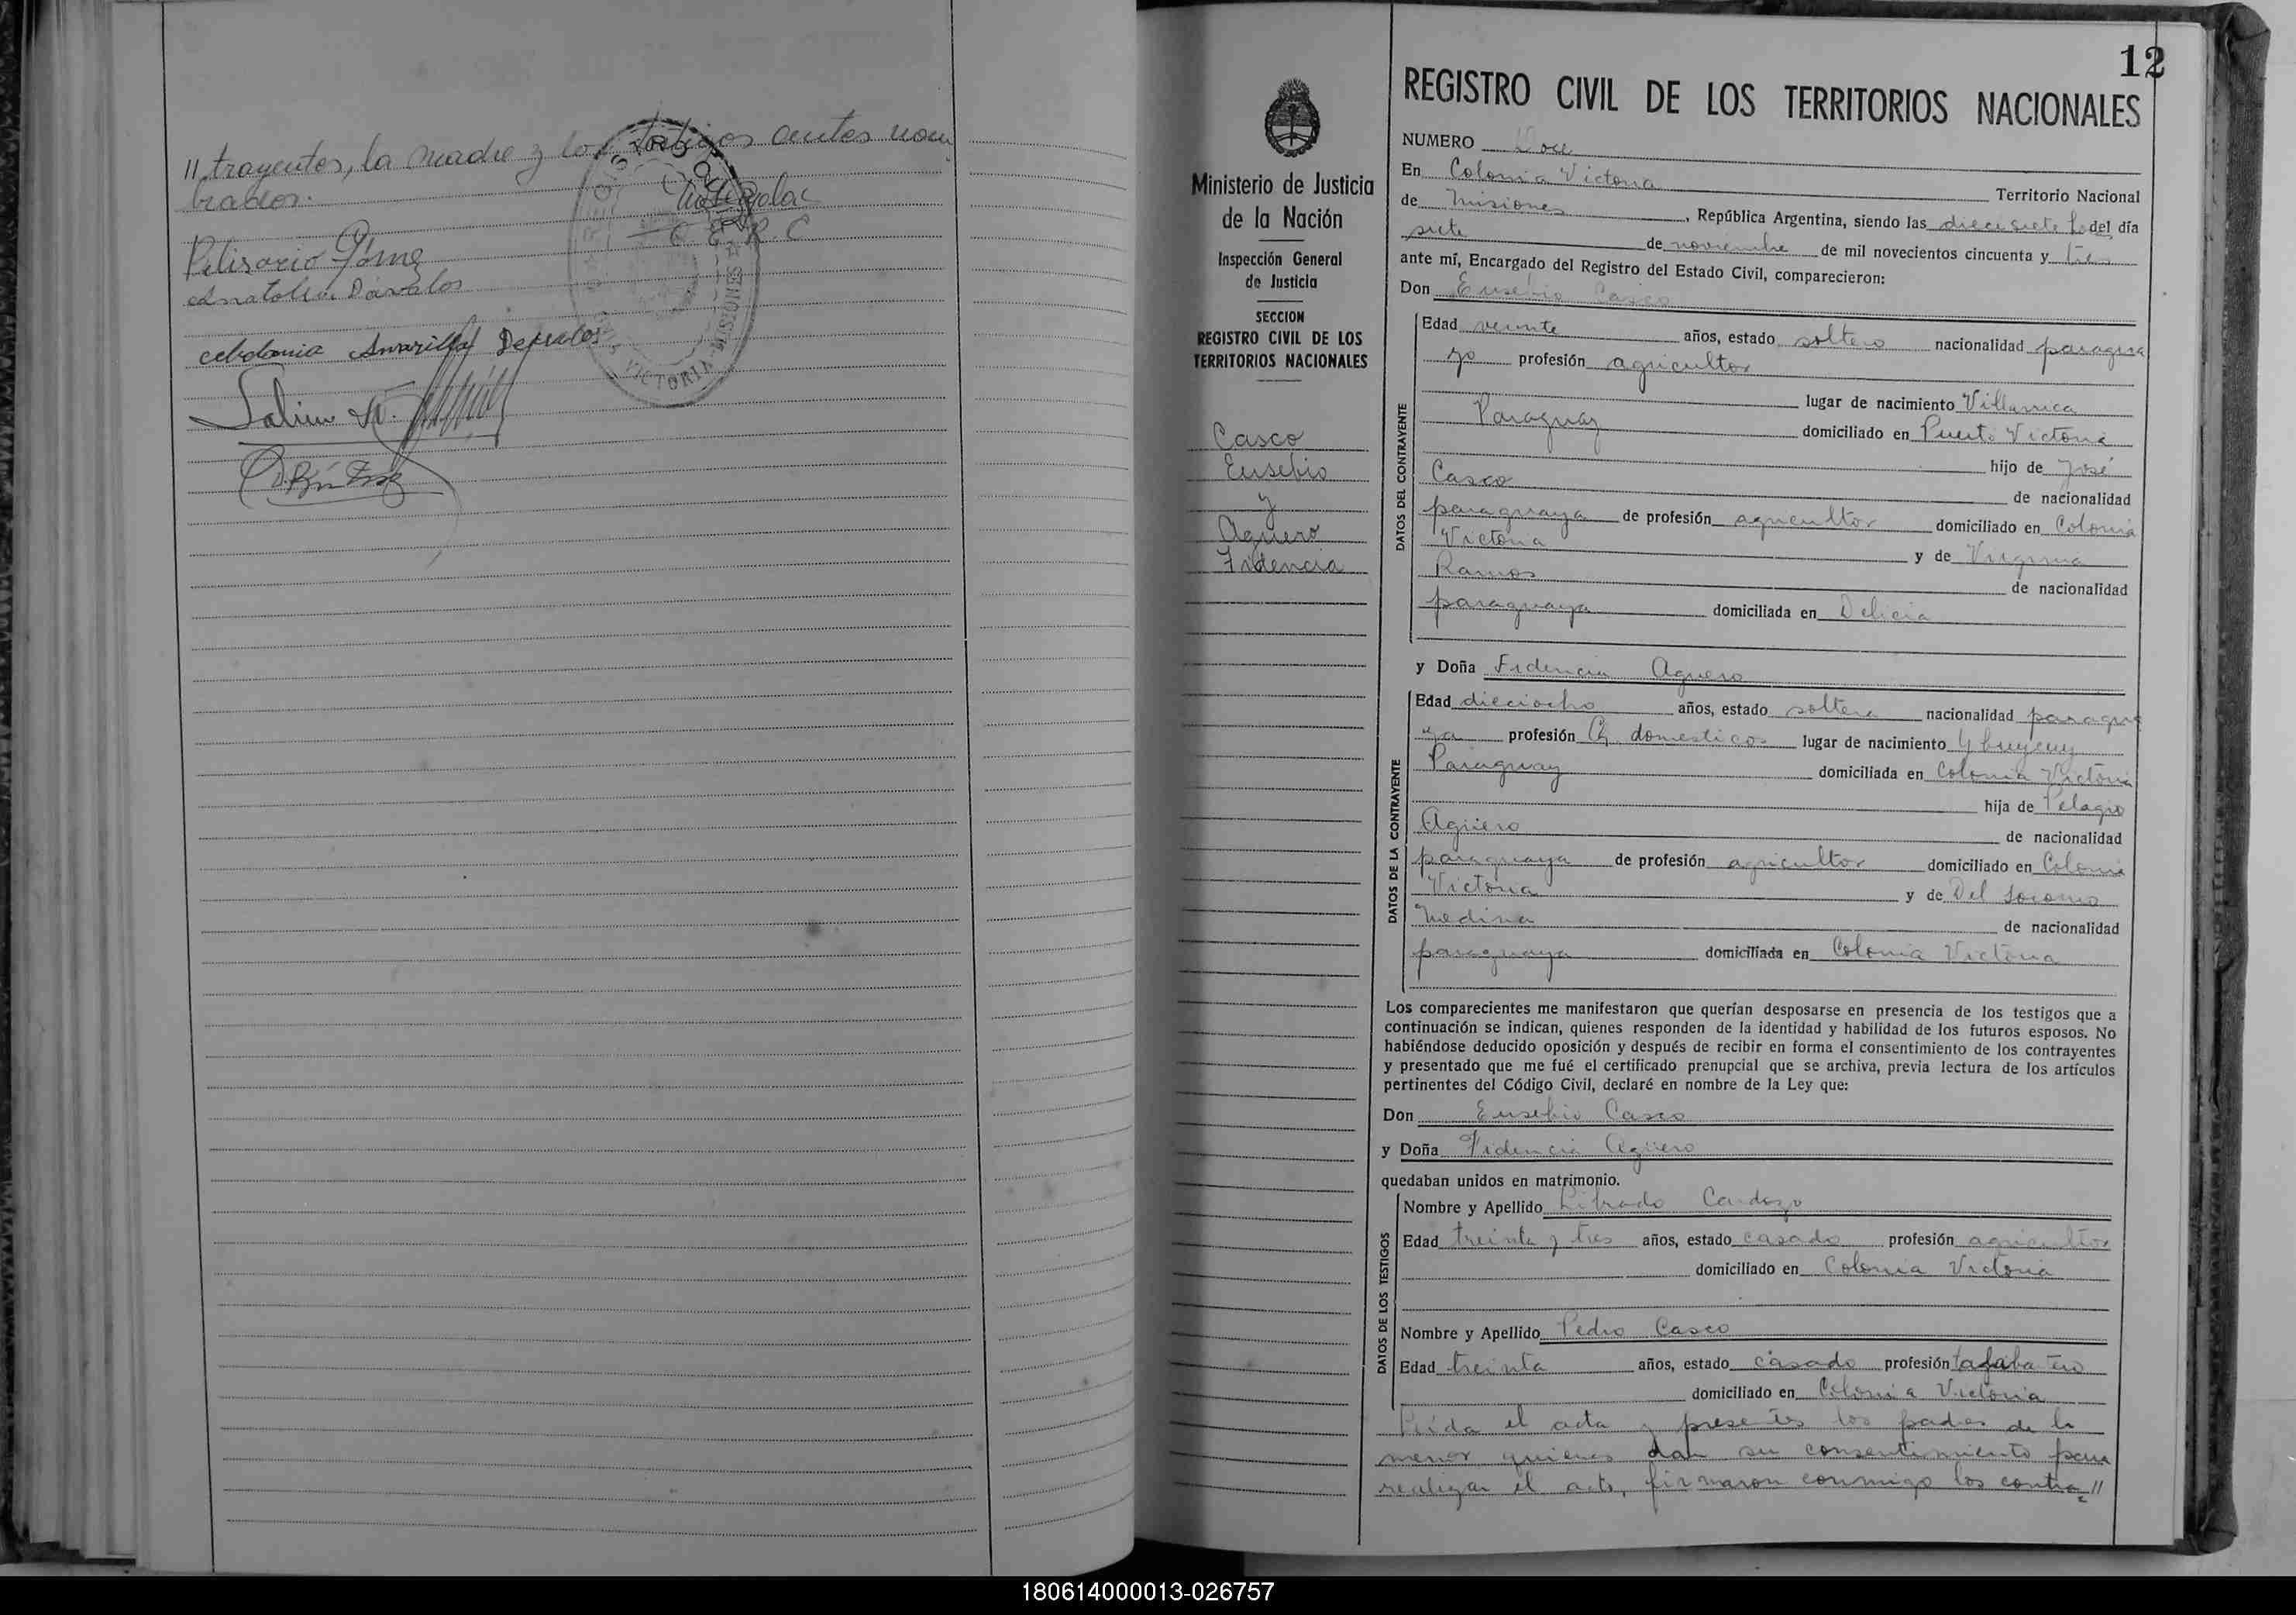 // trayentes, la madre y los testigos antes nom
brados.
E. R. C
Belisario Gómez
Anatolia Davalos
celedonia Amarilla Devalos
VICTORIA - MISIONES
12
REGISTRO CIVIL DE LOS TERRITORIOS NACIONALES
Ministerio de Justicia
de la Nación
Inspección General
de Justicia
SECCION
REGISTRO CIVIL DE LOS
TERRITORIOS NACIONALES
Casco
Eusebio
y
Aguero
Fidencia
NUMERO Doce
En Colonia Victoria Territorio Nacional
de Misiones, República Argentina, siendo las diecisiete h. del día
siete de noviembre de mil novecientos cincuenta y tres
ante mí, Encargado del Registro del Estado Civil, comparecieron:
Don Eusebio Casco
DATOS DEL CONTRAYENTE
Edad veinte años, estado soltero nacionalidad paragua
yo profesión agricultor
lugar de nacimiento Villarrica
Paraguay domiciliado en Puerto Victoria
hijo de José
Casco de nacionalidad
paraguaya de profesión agricultor domiciliado en Colonia
Victoria y de Virginia
Ramos de nacionalidad
paraguaya domiciliada en Delicia
y Doña Fidencia Aguero
DATOS DE LA CONTRAYENTE
Edad dieciocho años, estado soltera nacionalidad paragua
ya profesión Q. domesticos lugar de nacimiento Ybuycuy
Paraguay domiciliada en Colonia Victoria
hija de Pelagio
Agüero de nacionalidad
paraguaya de profesión agricultor domiciliado en Colonia
Victoria y de Del Socorro
Medina de nacionalidad
paraguaya domiciliada en Colonia Victoria
Los comparecientes me manifestaron que querían desposarse en presencia de los testigos que a
continuación se indican, quienes responden de la identidad y habilidad de los futuros esposos. No
habiéndose deducido oposición y después de recibir en forma el consentimiento de los contrayentes
y presentado que me fué el certificado prenupcial que se archiva, previa lectura de los artículos
pertinentes del Código Civil, declaré en nombre de la Ley que:
Don Eusebio Casco
y Doña Fidencia Agüero
quedaban unidos en matrimonio.
DATOS DE LOS TESTIGOS
Nombre y Apellido Librado Cardozo
Edad treinta y tres años, estado casado profesión agricultor
domiciliado en Colonia Victoria
Nombre y Apellido Pedro Casco
Edad treinta años, estado casado profesión talabartero
domiciliado en Colonia Victoria
Leída el acta y presentes los padres de la
menor quienes dan su consentimiento para
realizar el acto, firmaron conmigo los contra //
180614000013-026757